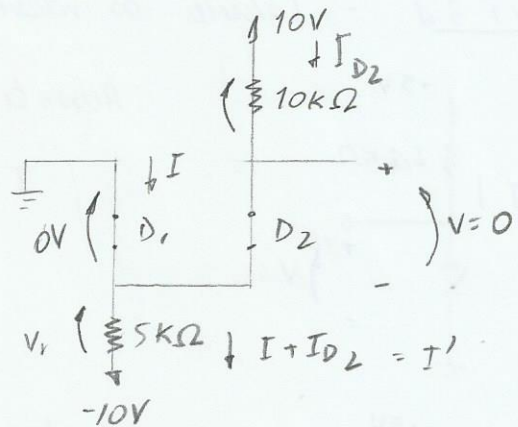 10V
I_D2
10kΩ
I
+
0V
D1
D2
V=0
-
V1
5kΩ
I + I_D2 = I'
-10V